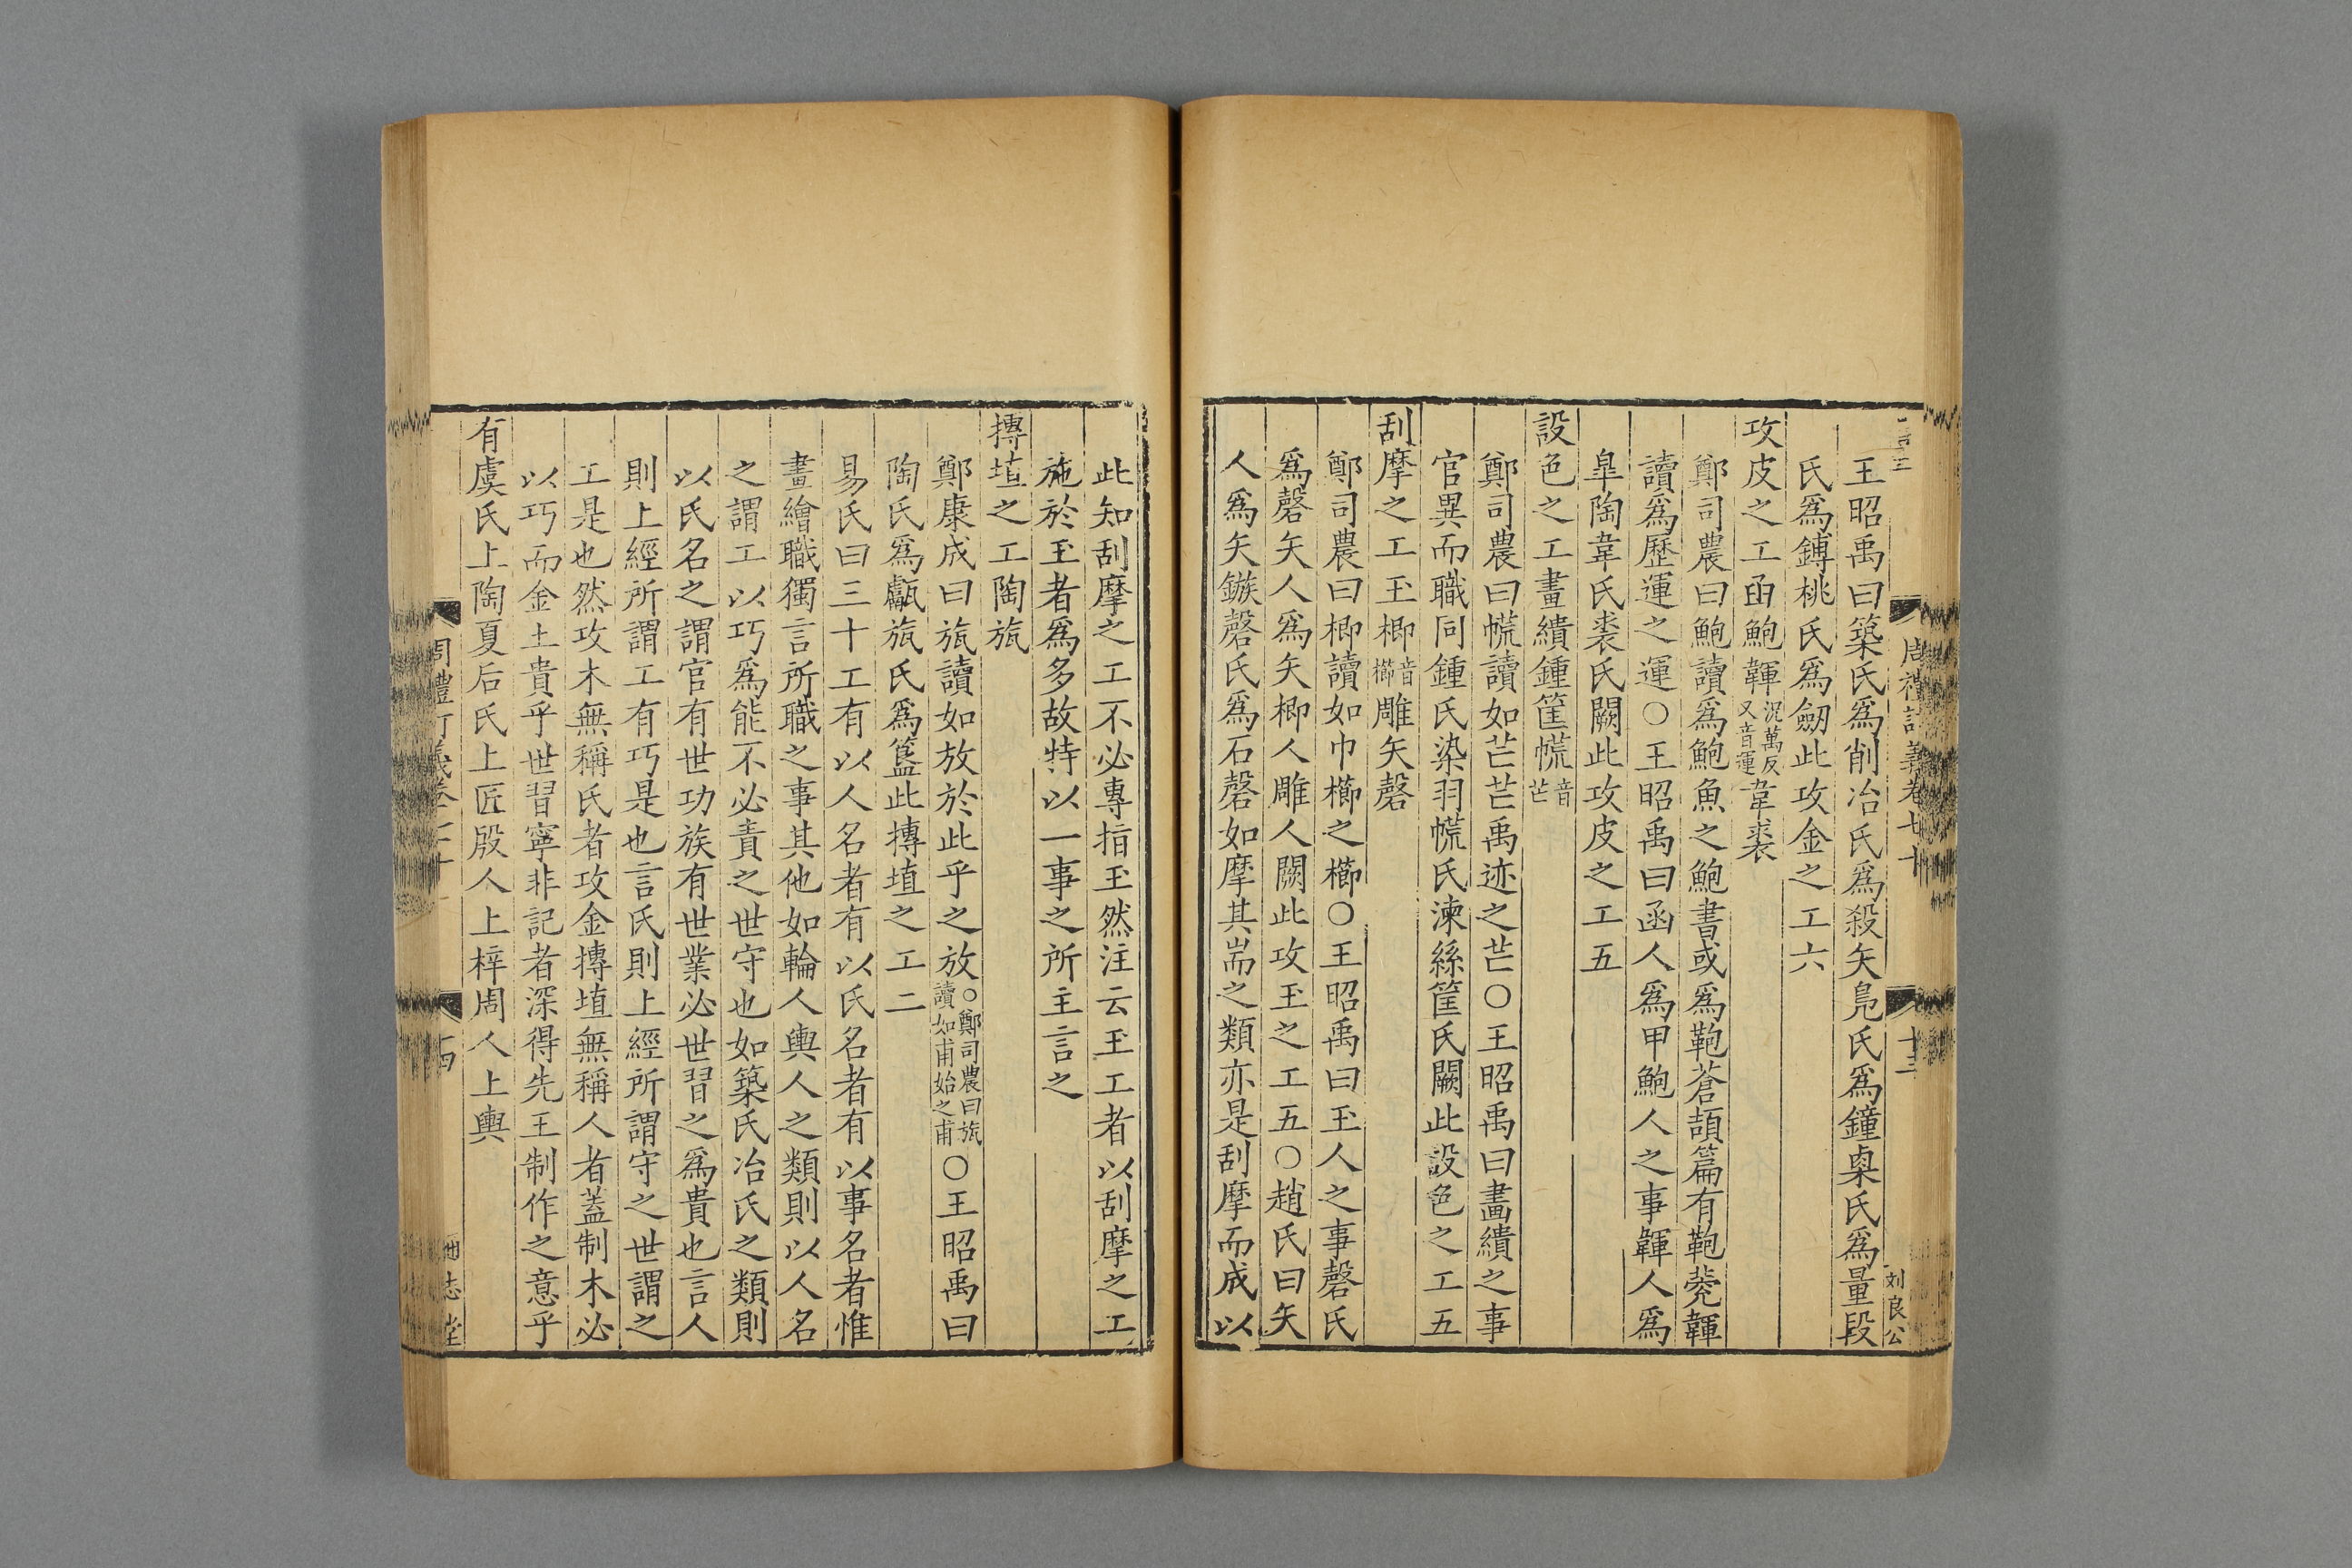 王昭禹曰築氏爲削冶氏爲殺矢鳧氏爲鐘㮚氏爲量段
氏爲鎛桃氏爲劒此攻金之工六
攻皮之工函鮑韗況萬反又音運韋裘
鄭司農曰鮑讀爲鮑魚之鮑書或爲鞄蒼頡篇有鞄㼱韗
讀爲歷運之運○王昭禹曰函人爲甲鮑人之事韗人爲
皐陶韋氏裘氏闕此攻皮之工五
設色之工畫繢鍾筐㡆音芒
鄭司農曰㡆讀如芒芒禹迹之芒○王昭禹曰畫繢之事
官異而職同鍾氏染羽㡆氏湅絲筐氏闕此設色之工五
刮摩之工玉楖音櫛雕矢磬
鄭司農曰楖讀如巾櫛之櫛○王昭禹曰玉人之事磬氏
爲磬矢人爲矢楖人雕人闕此攻玉之工五○趙氏曰矢
人爲矢鏃磬氏爲石磬如摩其耑之類亦是刮摩而成以
周禮訂義卷七十
十三
刘良公
此知刮摩之工不必專指玉然注云玉工者以刮摩之工
施於玉者爲多故特以一事之所主言之
摶埴之工陶瓬
鄭康成曰瓬讀如放於此乎之放○鄭司農曰瓬讀如甫始之甫○王昭禹曰
陶氏爲甗瓬氏爲簋此摶埴之工二
易氏曰三十工有以人名者有以氏名者有以事名者惟
畫繪職獨言所職之事其他如輪人輿人之類則以人名
之謂工以巧爲能不必責之世守也如築氏冶氏之類則
以氏名之謂官有世功族有世業必世習之爲貴也言人
則上經所謂工有巧是也言氏則上經所謂守之世謂之
工是也然攻木無稱氏者攻金摶埴無稱人者蓋制木必
以巧而金土貴乎世習寧非記者深得先王制作之意乎
有虞氏上陶夏后氏上匠殷人上梓周人上輿